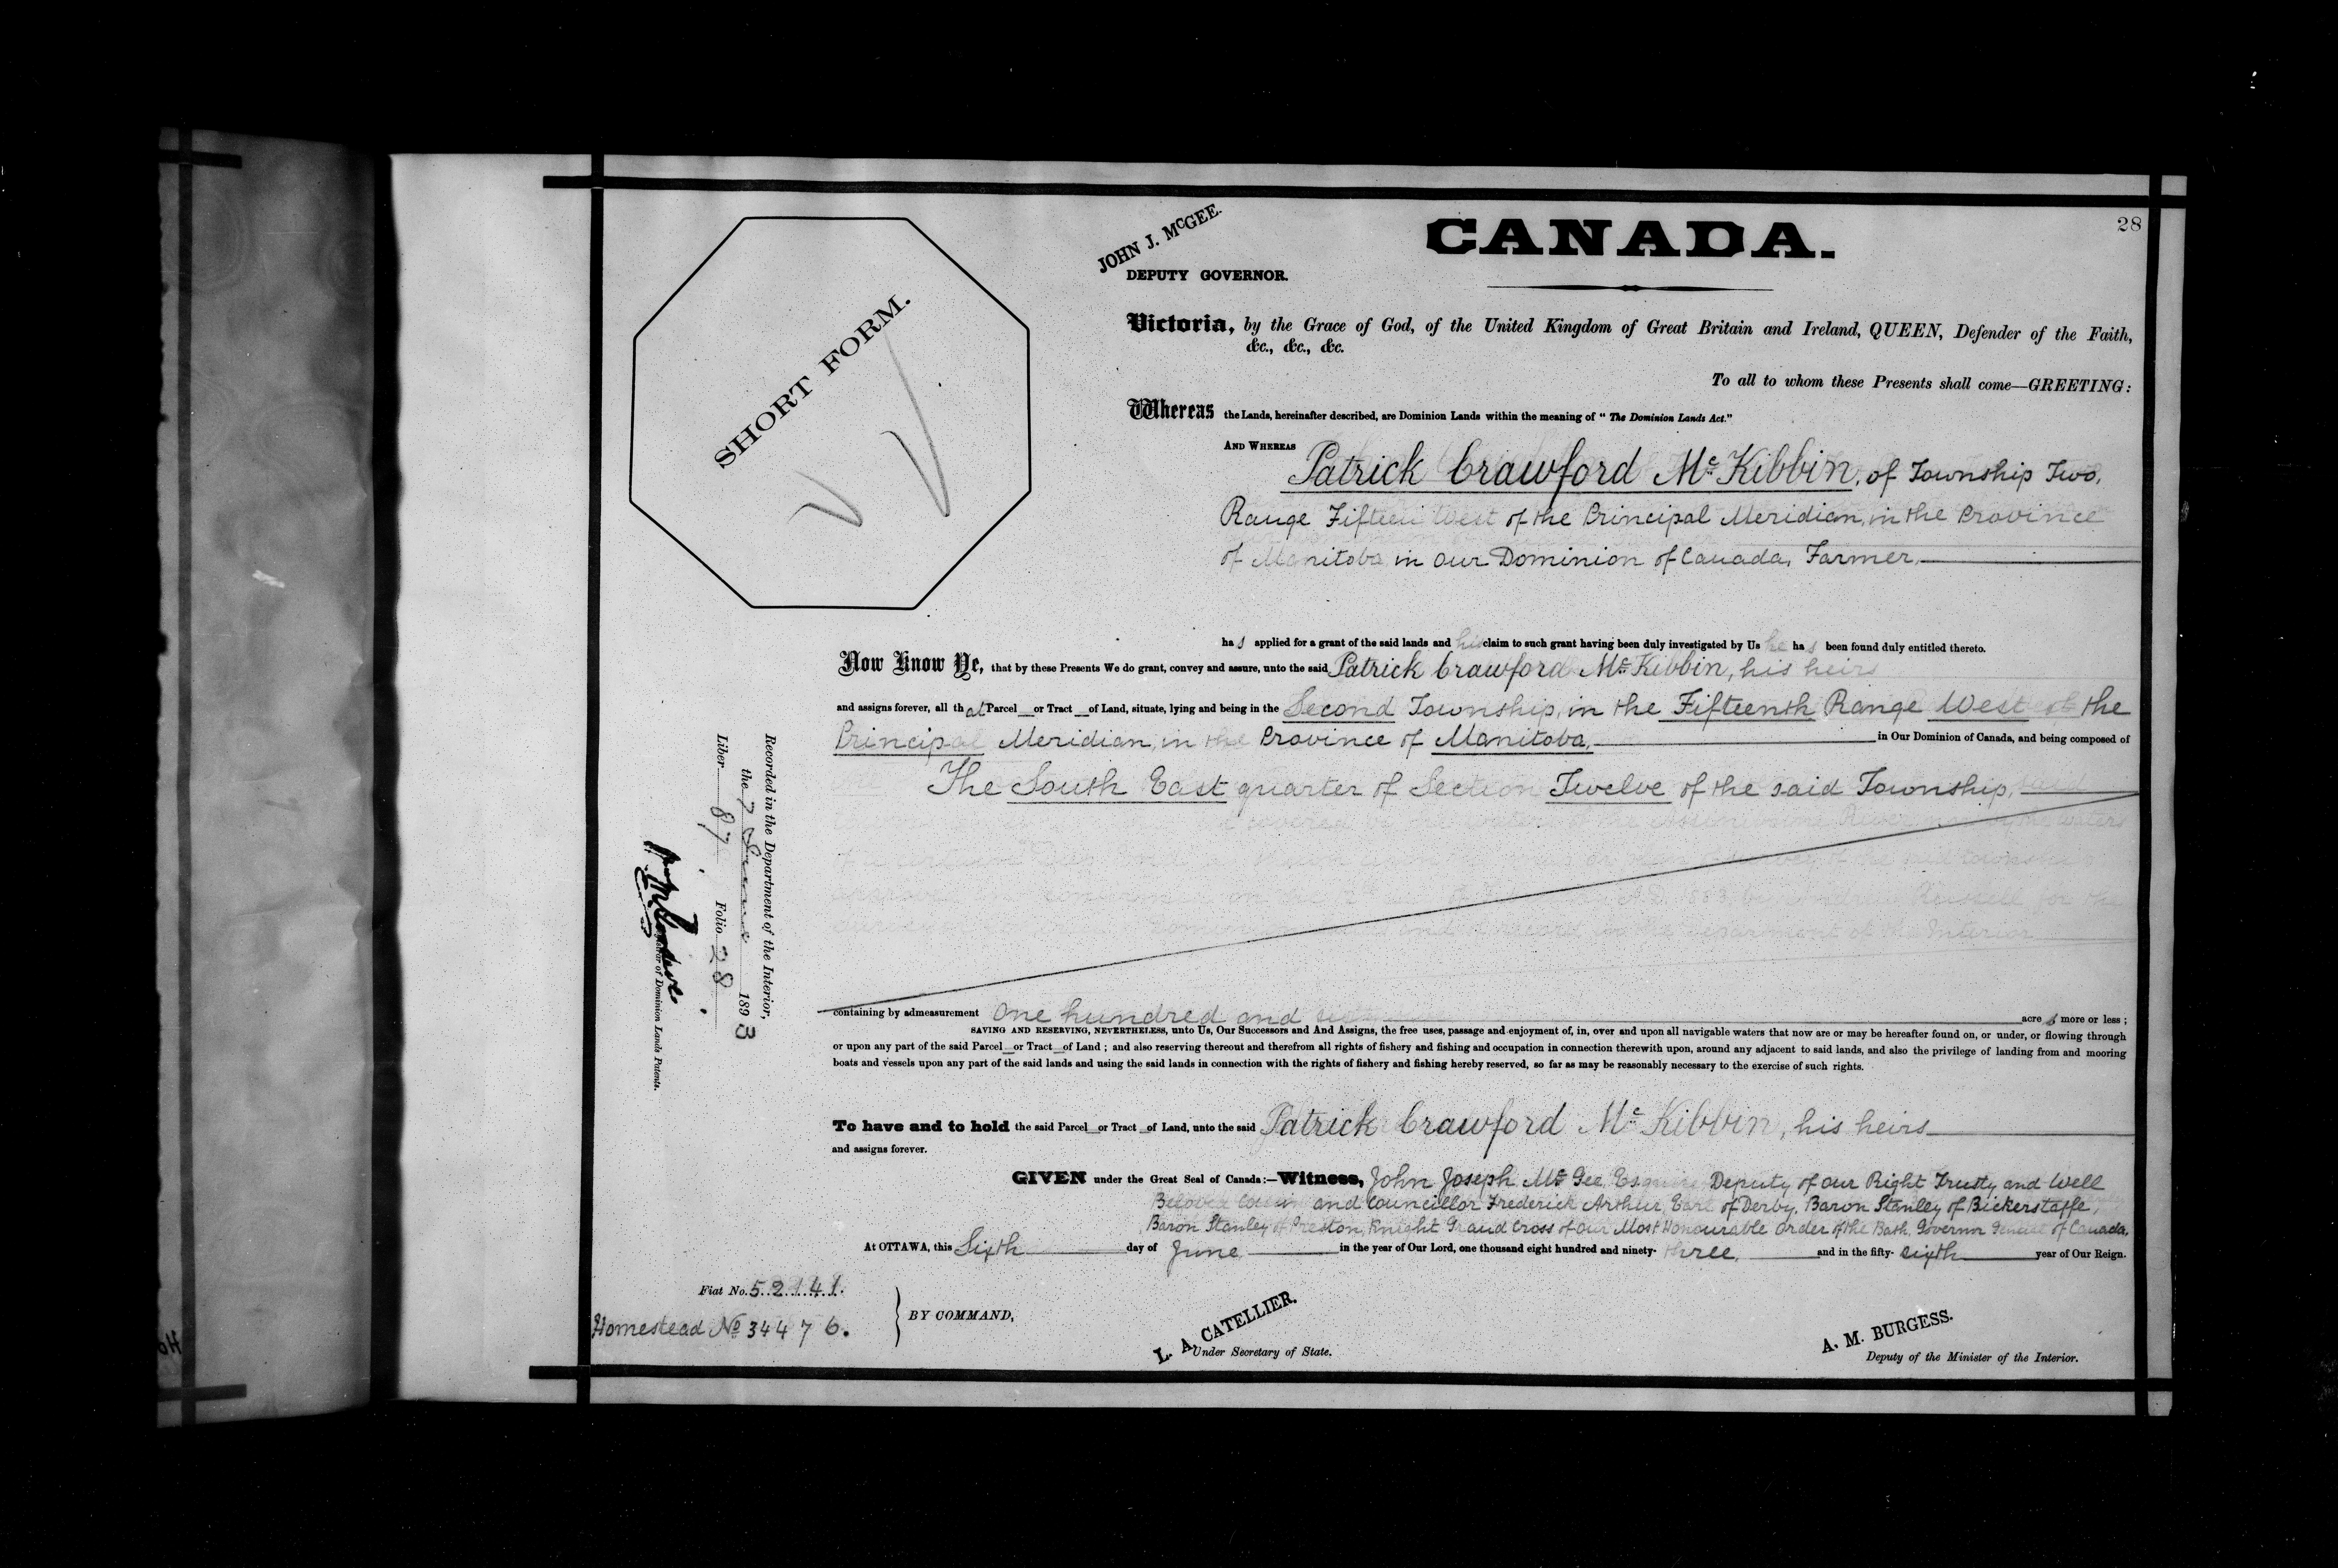 28
CANADA.
JOHN J. McGEE.
DEPUTY GOVERNOR.
SHORT FORM.
Victoria, by the Grace of God, of the United Kingdom of Great Britain and Ireland, QUEEN, Defender of the Faith,
&c., &c., &c.
To all to whom these Presents shall come—GREETING:
Whereas the Lands, hereinafter described, are Dominion Lands within the meaning of "The Dominion Lands Act."
AND WHEREAS
Patrick Crawford McKibbin, of Township Two,
Range Fifteen West of the Principal Meridian, in the Province
of Manitoba in our Dominion of Canada, Farmer,
has applied for a grant of the said lands and his claim to such grant having been duly investigated by Us he has been found duly entitled thereto.
Now Know Ye, that by these Presents We do grant, convey and assure, unto the said Patrick Crawford McKibbin, his heirs
and assigns forever, all that Parcel or Tract of Land, situate, lying and being in the Second Township, in the Fifteenth Range West of the
Principal Meridian, in the Province of Manitoba, in Our Dominion of Canada, and being composed of
The South East quarter of Section Twelve of the said Township,
containing by admeasurement One hundred and acres more or less;
SAVING AND RESERVING, NEVERTHELESS, unto Us, Our Successors and And Assigns, the free uses, passage and enjoyment of, in, over and upon all navigable waters that now are or may be hereafter found on, or under, or flowing through
or upon any part of the said Parcel or Tract of Land; and also reserving thereout and therefrom all rights of fishery and fishing and occupation in connection therewith upon, around any adjacent to said lands, and also the privilege of landing from and mooring
boats and vessels upon any part of the said lands and using the said lands in connection with the rights of fishery and fishing hereby reserved, so far as may be reasonably necessary to the exercise of such rights.
To have and to hold the said Parcel or Tract of Land, unto the said Patrick Crawford McKibbin, his heirs
and assigns forever.
GIVEN under the Great Seal of Canada:—Witness, John Joseph McGee, Esquire Deputy of our Right Trusty and Well
Beloved Cousin and Councillor Frederick Arthur, Earl of Derby, Baron Stanley of Bickerstaffe,
Baron Stanley of Preston, Knight Grand Cross of our Most Honourable Order of the Bath, Governor General of Canada.
At OTTAWA, this Sixth day of June in the year of Our Lord, one thousand eight hundred and ninety-three, and in the fifty-sixth year of Our Reign.
Fiat No. 52141.
Homestead No 34476.
BY COMMAND,
L. A. CATELLIER.
Under Secretary of State.
A. M. BURGESS.
Deputy of the Minister of the Interior.
Recorded in the Department of the Interior,
the 7 June 1893
Liber 87 Folio 28
of Dominion Lands Patents.